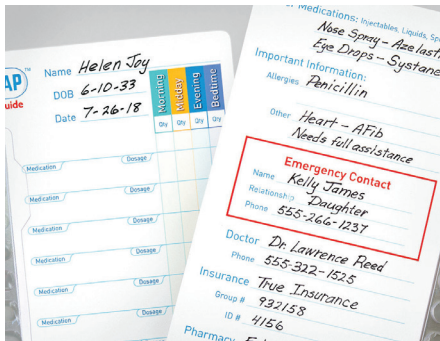 AP™
uide
Name Helen Joy
DOB 6-10-33
Date 7-26-18
Morning Midday Evening Bedtime
Qty Qty Qty Qty
Medication Dosage
Medication Dosage
Medication Dosage
Medication Dosage
Medication Dosage
Medication Dosage
Medications: Injectables, Liquids,
Nose Spray - Azelast
Eye Drops - Systane
Important Information:
Allergies Penicillin
Other Heart - AFib
Needs full assistance
Emergency Contact
Name Kelly James
Relationship Daughter
Phone 555-266-1237
Doctor Dr. Lawrence Reed
Phone 555-322-1525
Insurance True Insurance
Group # 932158
ID # 4156
Pharmacy